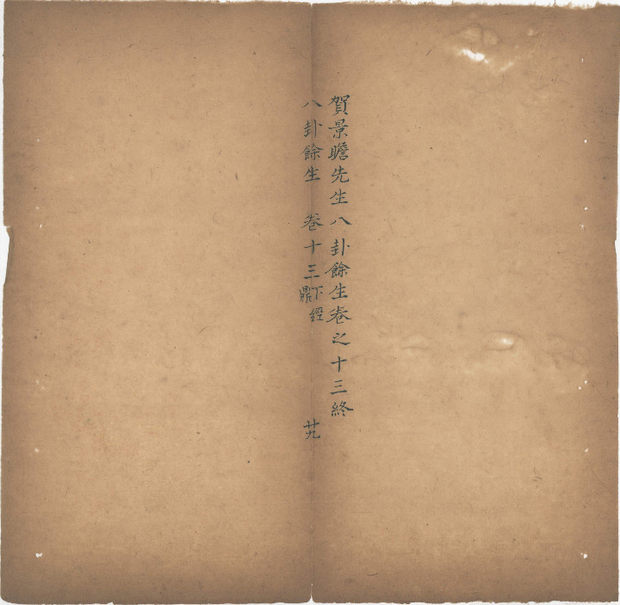 賀景瞻先生八卦餘生卷之十三終
八卦餘生 卷十三 下經 鼎 廿九